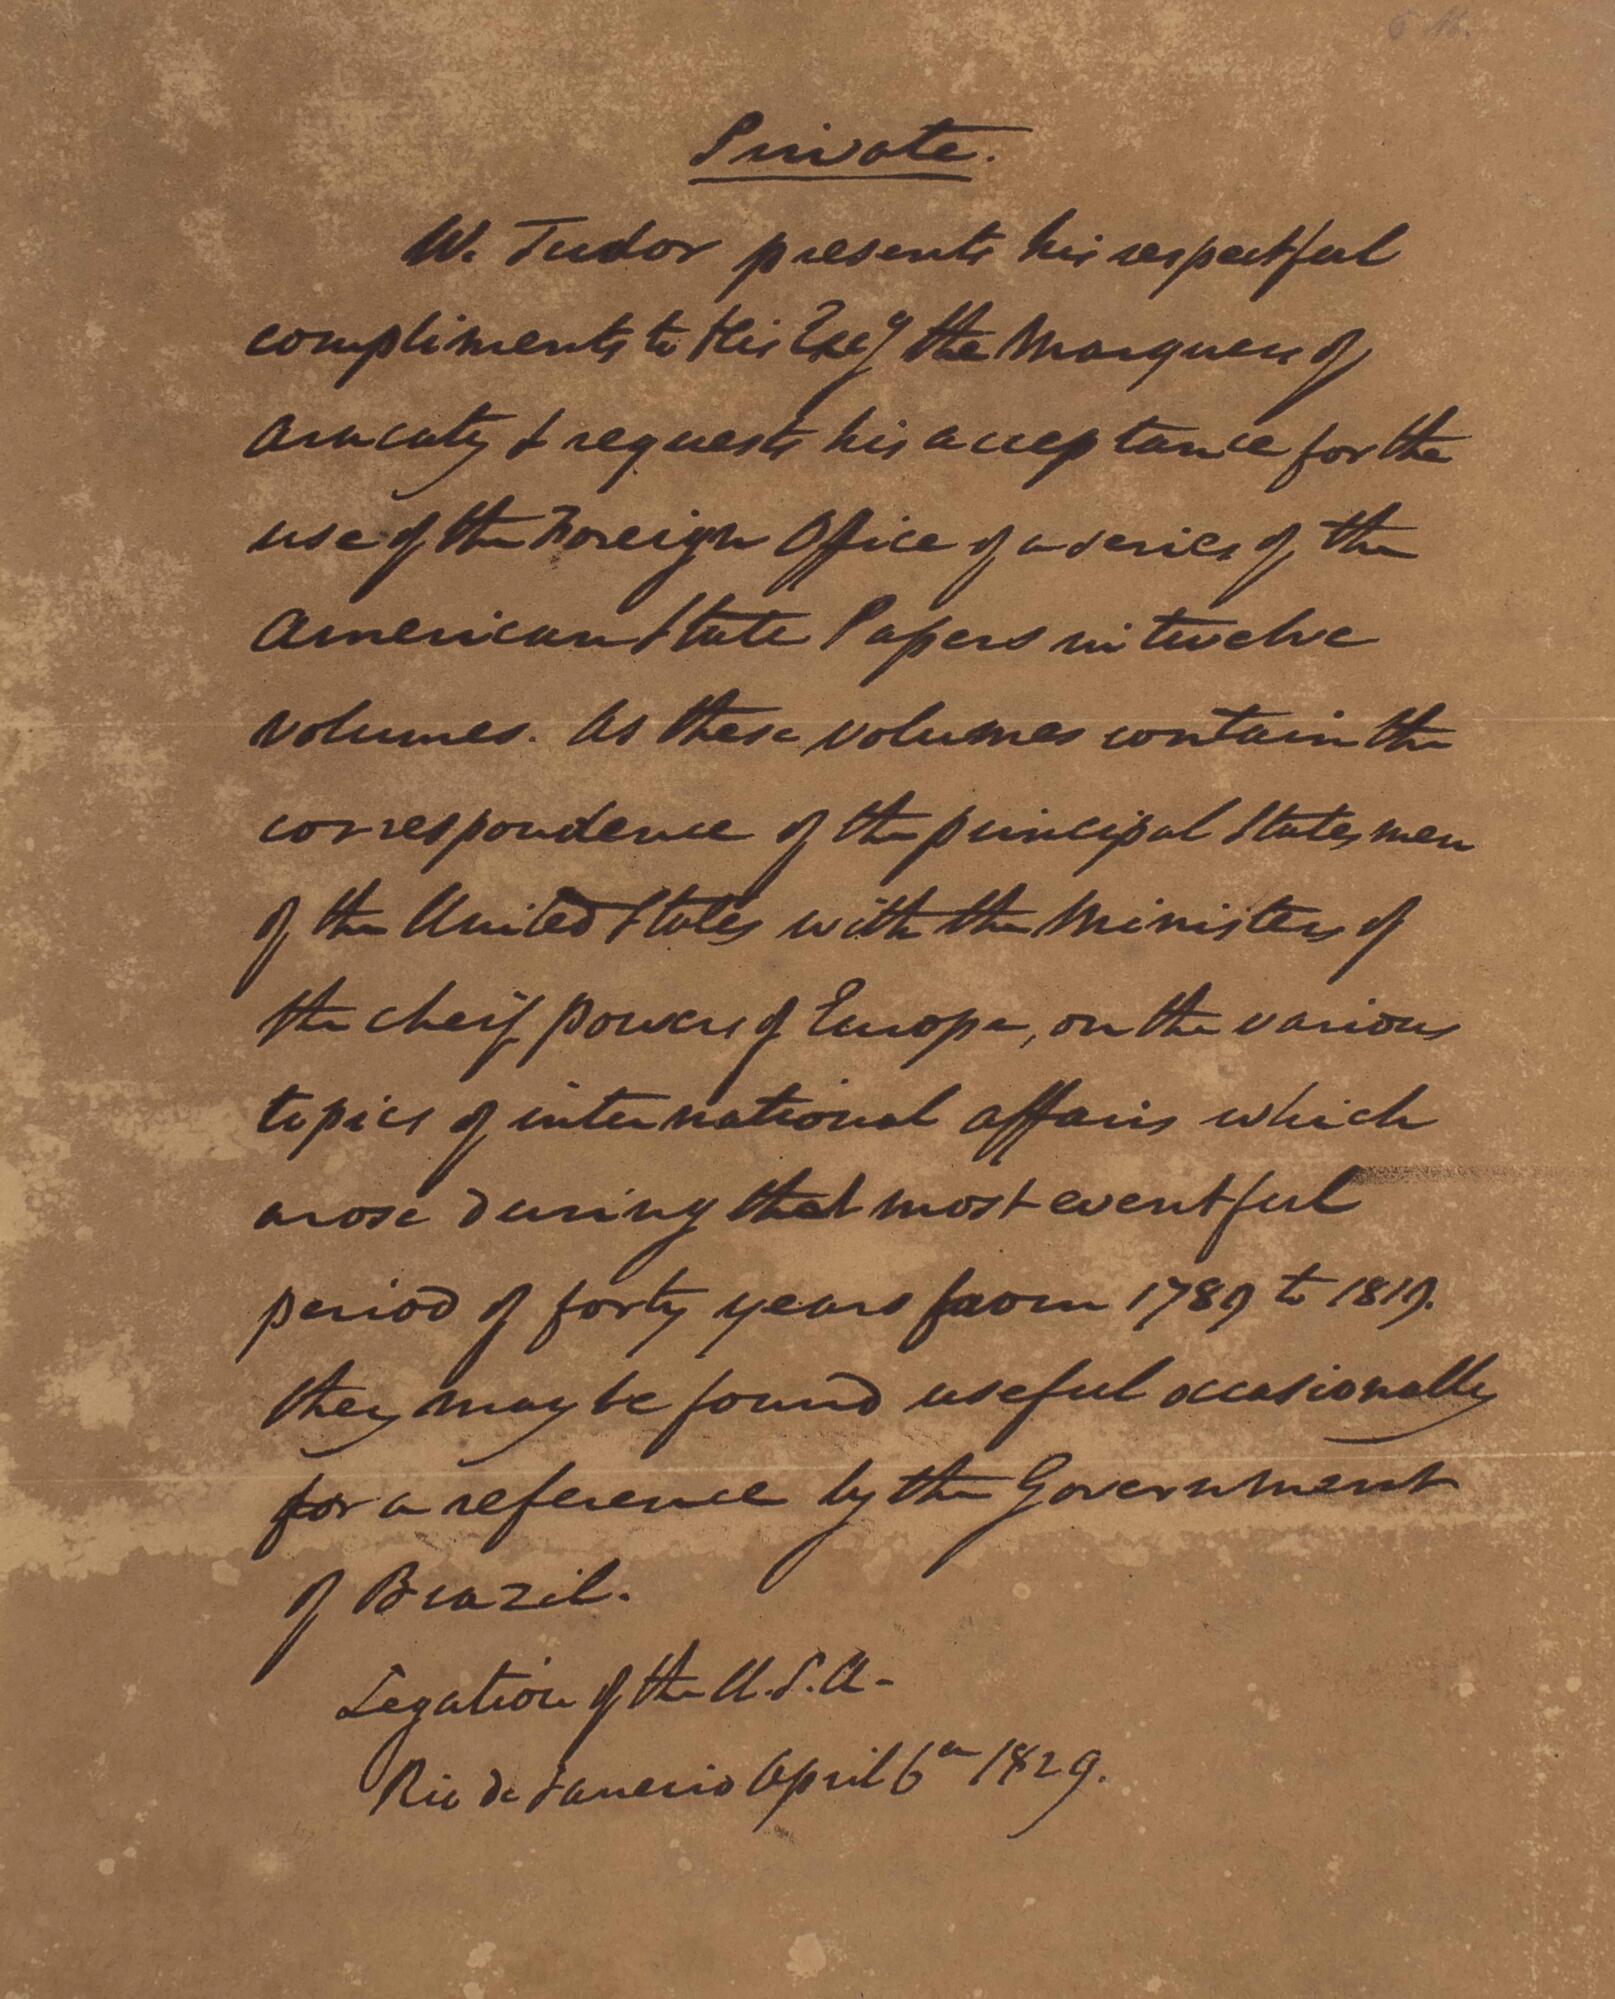 Private.
W. Tudor presents his respectful
compliments to His Excy the Marquess of
Aracaty & requests his acceptance for the
use of the Foreign Office of a series of the
American State Papers in twelve
volumes. As these volumes contain the
correspondence of the principal Statesmen
of the United States with the Ministers of
the cheif powers of Europe, on the various
topics of international affairs which
arose during that most eventful
period of forty years from 1789 to 1819.
they may be found useful occasionally
for a reference by the Government
of Brazil.
Legation of the U.S.A-
Rio de Janerio April 6th 1829.